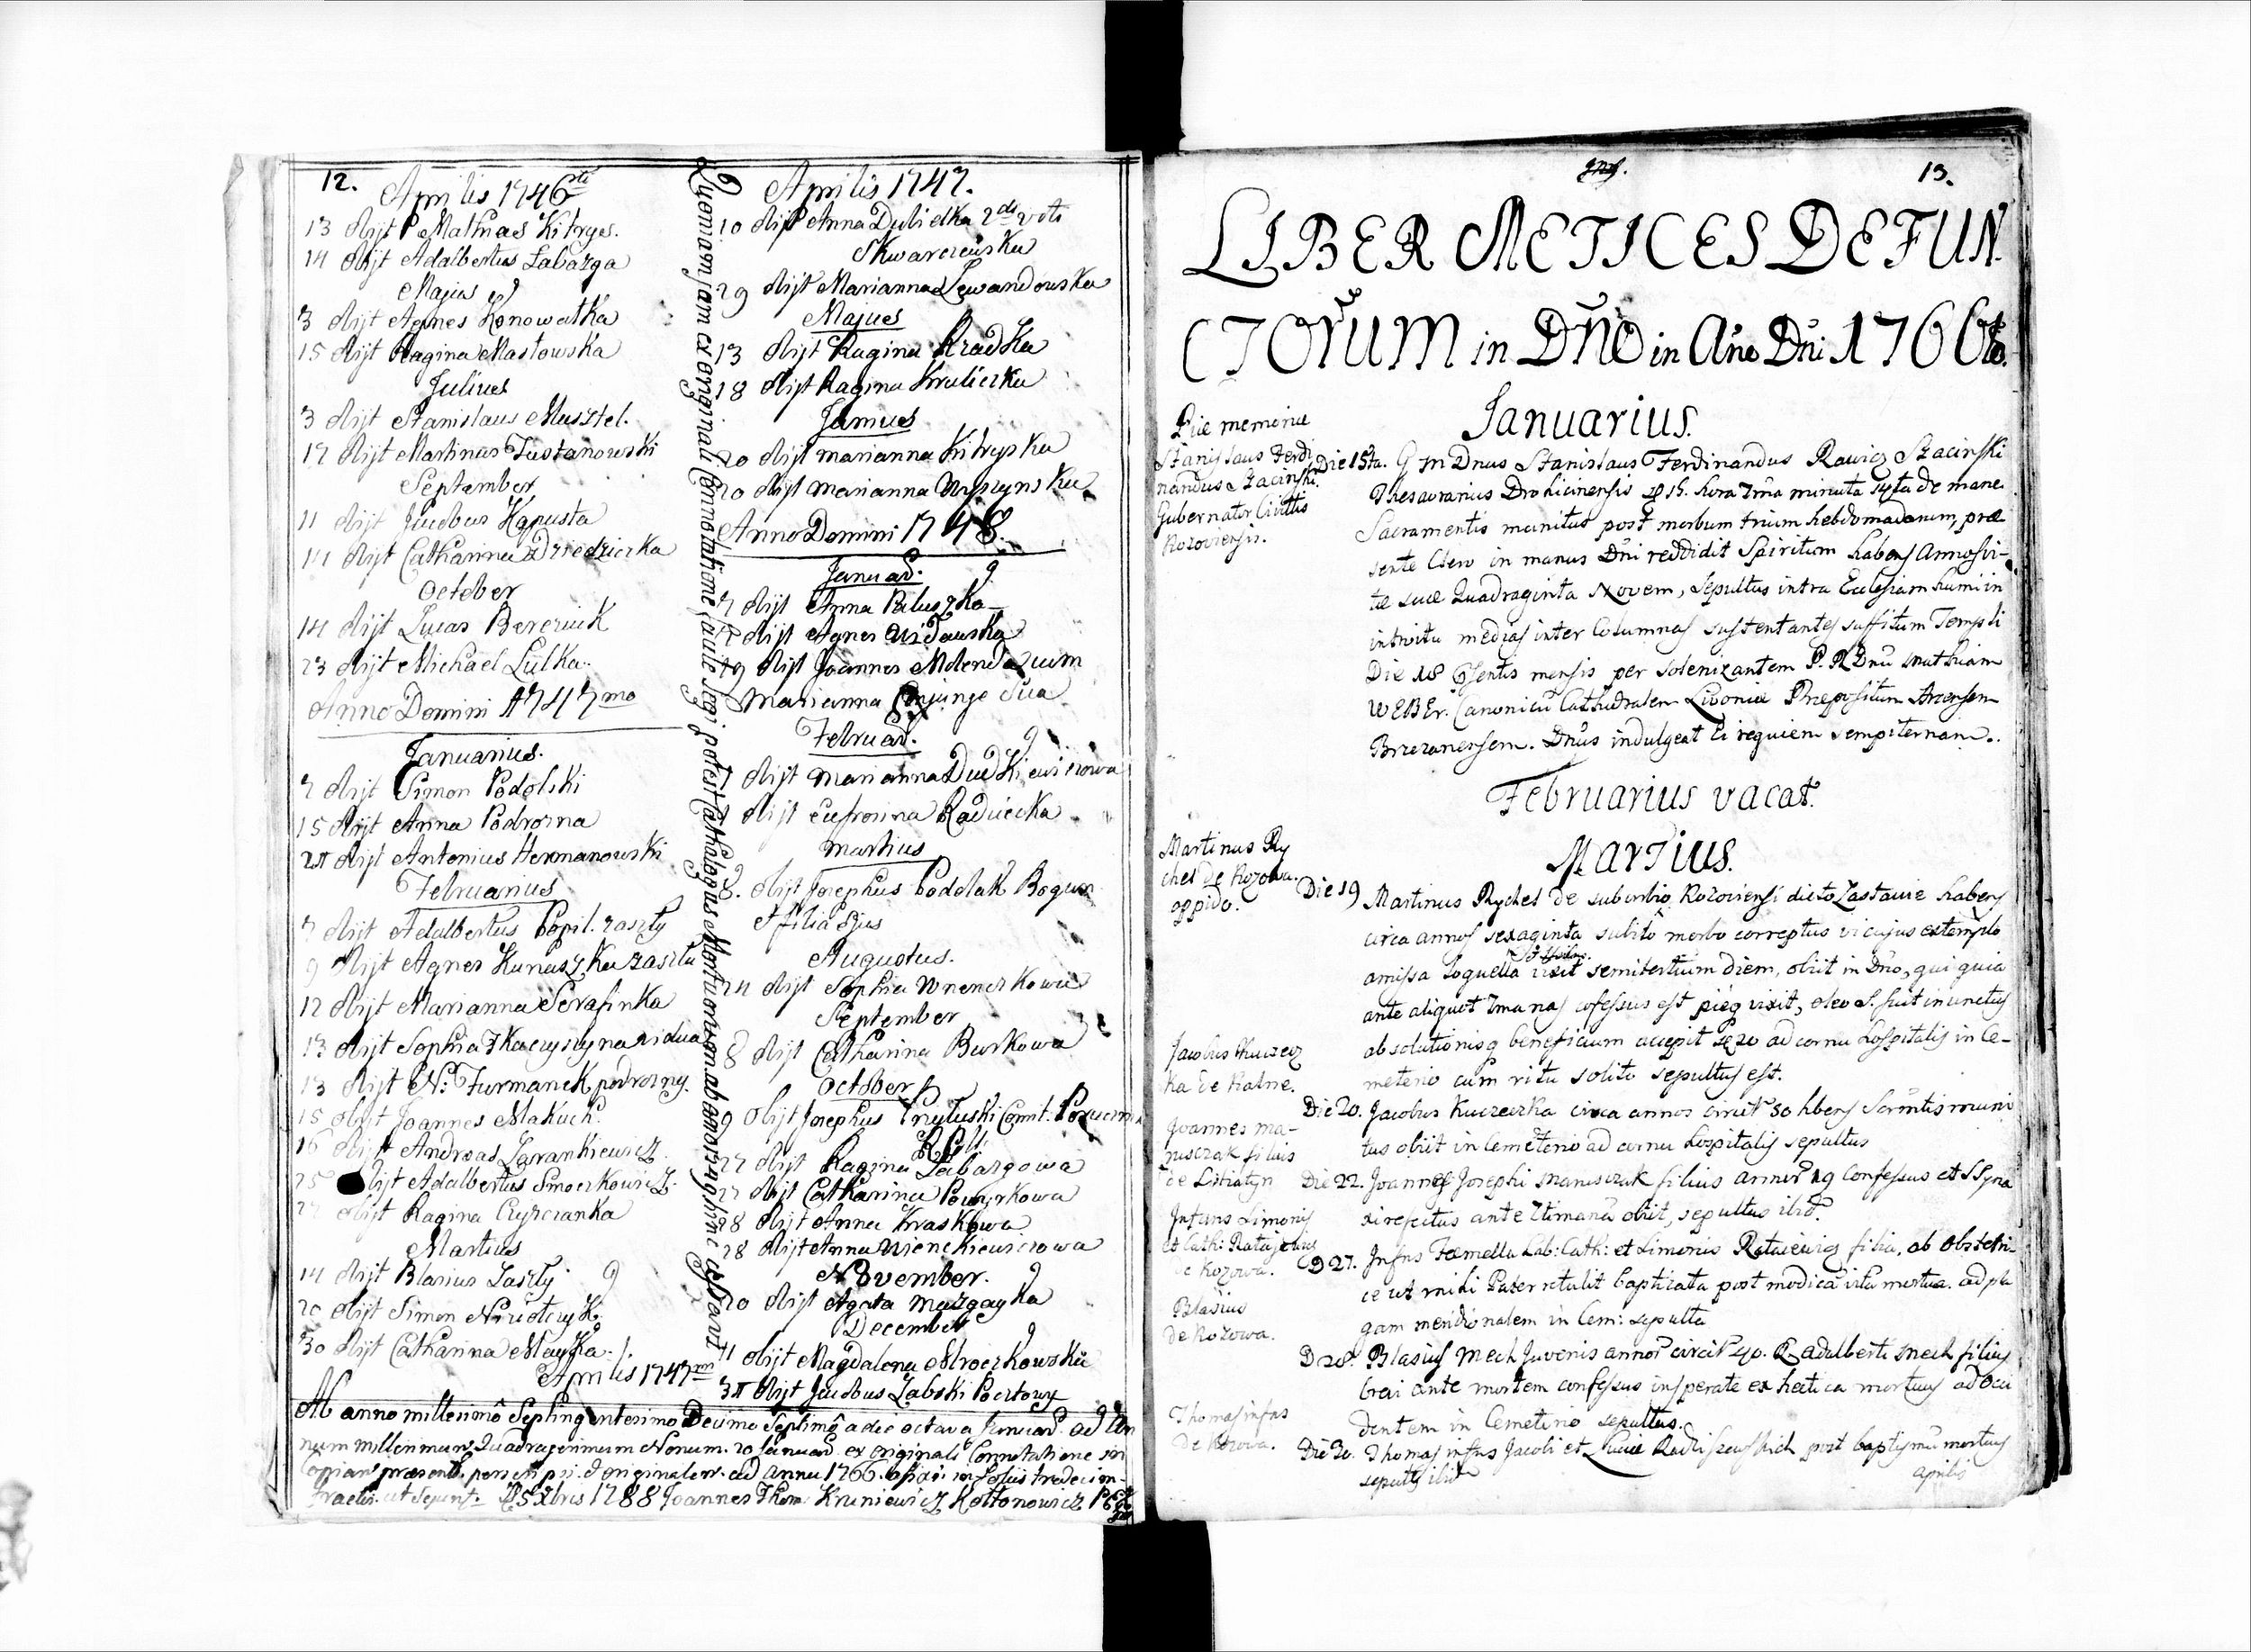 12.
Aprilis 1746
13 Obijt P Mathias Kitryes.
14 Obijt Adalbertus Labazga
Majus
3 Obijt Agnes Konowatka
15 Obijt Ragina Mastowska
Julius
3 Obijt Stanislaus Musztel.
17 Obijt Martinus Tustanowski
September
11 Obijt Jacobus Kapusta
14 Obijt Catharina Dziedziczka
October
14 Obijt Lucas Bereziuk
23 Obijt Michael Lulka.
Anno Domini 1747mo
Januarius.
7 Obijt Simon Podolski
15 Obijt Anna Podrozna
Obijt Antonius Hermanowski
Februarius
7 Obijt Adalbertus Popil. zaszly
9 Obijt Agnes Kunaszka zaszla
12 Obijt Marianna Serafinka
13 Obijt Sophia Tkaczyszyna vidua
13 Obijt N: Furmanek podrozny.
15 Obijt Joannes Makuch.
16 Obijt Andreas Zarankiewicz.
25 Obijt Adalbertus Smoczkowicz.
Obijt Ragina Czyszczanka
Martius
14 Obijt Blasius Zaszly
20 Obijt Simon
30 Obijt Catharina Mayka.
Aprilis 1747
Quoniam jam ex originali Connotatione facile legi potest Cathalogus Mortuorum ab anno 1749 hinc cessavit
Aprilis 1747.
10 Obijt Anna Dulielka 2do voto
Skwarczewska
29 Obijt Marianna Lewandowska
Majus
13 Obijt Ragina Rzadka
18 Obijt Ragina Kruliczka
Junius
20 Obijt Marianna Kitryska
20 Obijt Marianna Wyszynska
Anno Domini 1748.
Januar.
7 Obijt Anna Paluszka
Obijt Agnes Widawska
19 Obijt Joannes Molenda cum
Marianna Conjunge Sua
Februar.
7 Obijt Marianna Dudkiewiczowa
Obijt Eufrosina Radiecka
Martius
8. Obijt Josephus Podolak Bogusz
et filia Ejus
Augustus.
24 Obijt Sophia Wnenczkowa
September
8 Obijt Catharina Burkowa
October
9 Obijt Josephus Pruluski Comit.
27 Obijt Ragina Labazgowa
27 Obijt Catharina
28 Obijt Anna Kraskowa
28 Obijt Anna Wienckiewiczowa
November.
20 Obijt Agata Mazgayka
December
11 Obijt Magdalena Mroczkowska
31 Obijt Jacobus Zabski Pocztowy
Ab anno millesimo Septingentesimo Decimo Septimo a die octava Januar. ad An
num millenimum Quadragesimum Nonum. 20 Januar. ex originali Connotatione in
Copiam praesentem perscripsi. d originalem. ad annum 1766. in foliis tredecim
1788 Joannes Thom: Kruniewicz Kottonowicz
13.
LIBER METICES DEFUN
CTORUM in DÑO in Año Dñi 1766to.
Januarius.
Piae memoriae
Stanislaus Ferdi
nandus Szacinski.
Gubernator Civittis
Kozoviensis.
Die 15ta. G Dnus Stanislaus Ferdinandus Rawicz Szacinski
Thesaurarius Drohicinensis hora 7ma minuta 14ta de mane
Sacramentis munitus post morbum trium hebdomadarum, prae
sente Clero in manus Dni reddidit Spiritum habens Annos vi-
tae suae Quadraginta Novem, Sepultus intra Ecclesiam humi in
introitu medias inter Columnas sustentantes suffitum Templi
Die 18 psentis mensis per solenizantem P. R Dnu Mathiam
WEBER. Canonicu Cathedralem Livoniae Praepositum
Brzezanensem. Dnus indulgeat Ei requiem sempiternam.
Februarius vacat.
Martius.
Martinus Ry
chel de Kozowa.
oppido.
Die 19 Martinus Rychel de suburbio Kozoviensi dicto Zastawie habens
circa annos sexaginta subito morbo correptus vi cujus extemplo
amissa loquella vixit semitertium diem, obiit in Dno, qui quia
ante aliquot 7manas cofessus est pieq vixit, oleo S. fuit inunctus
absolutionisq beneficium accepit ad cornu Hospitalis in Ce-
meterio cum ritu solito sepultus est.
Jacobus Kuczecz
ka de Kalne.
Die 20. Jacobus Kuczeczka circa annos circit 50 hbens Scrmtis muni
tus obiit in Cemeterio ad cornu Hospitalis sepultus
Joannes Ma-
nusczak filius
de Litiatyn
Die 22. Joannes Josephi Manusczak filius annor 19 confessus et SSyna
xi refectus ante 7timana obiit, sepultus ibid.
Infans Simonis
et Cath: Ratajewicz
de Kozowa.
D 27. Infns Faemella Lab: Cath: et Simonis Rataiewicz filia, ab obstetri-
ce ut mihi Pater retulit baptizata post modica vita mortua. ad pla
gam meridionalem in Cem: sepulta
Blasius
de Kozowa.
D 28. Blasius Mech Juvenis annor circit 40. Adalberti Mech filius
brevi ante mortem confessus insperate ex hectica mortuus ad Occi
dentem in Cemeterio sepultus.
Thomas infas
de Kozowa.
Die 30. Thomas infns Jacobi et Luciae post baptismu mortuus
sepults ibid
Aprilis